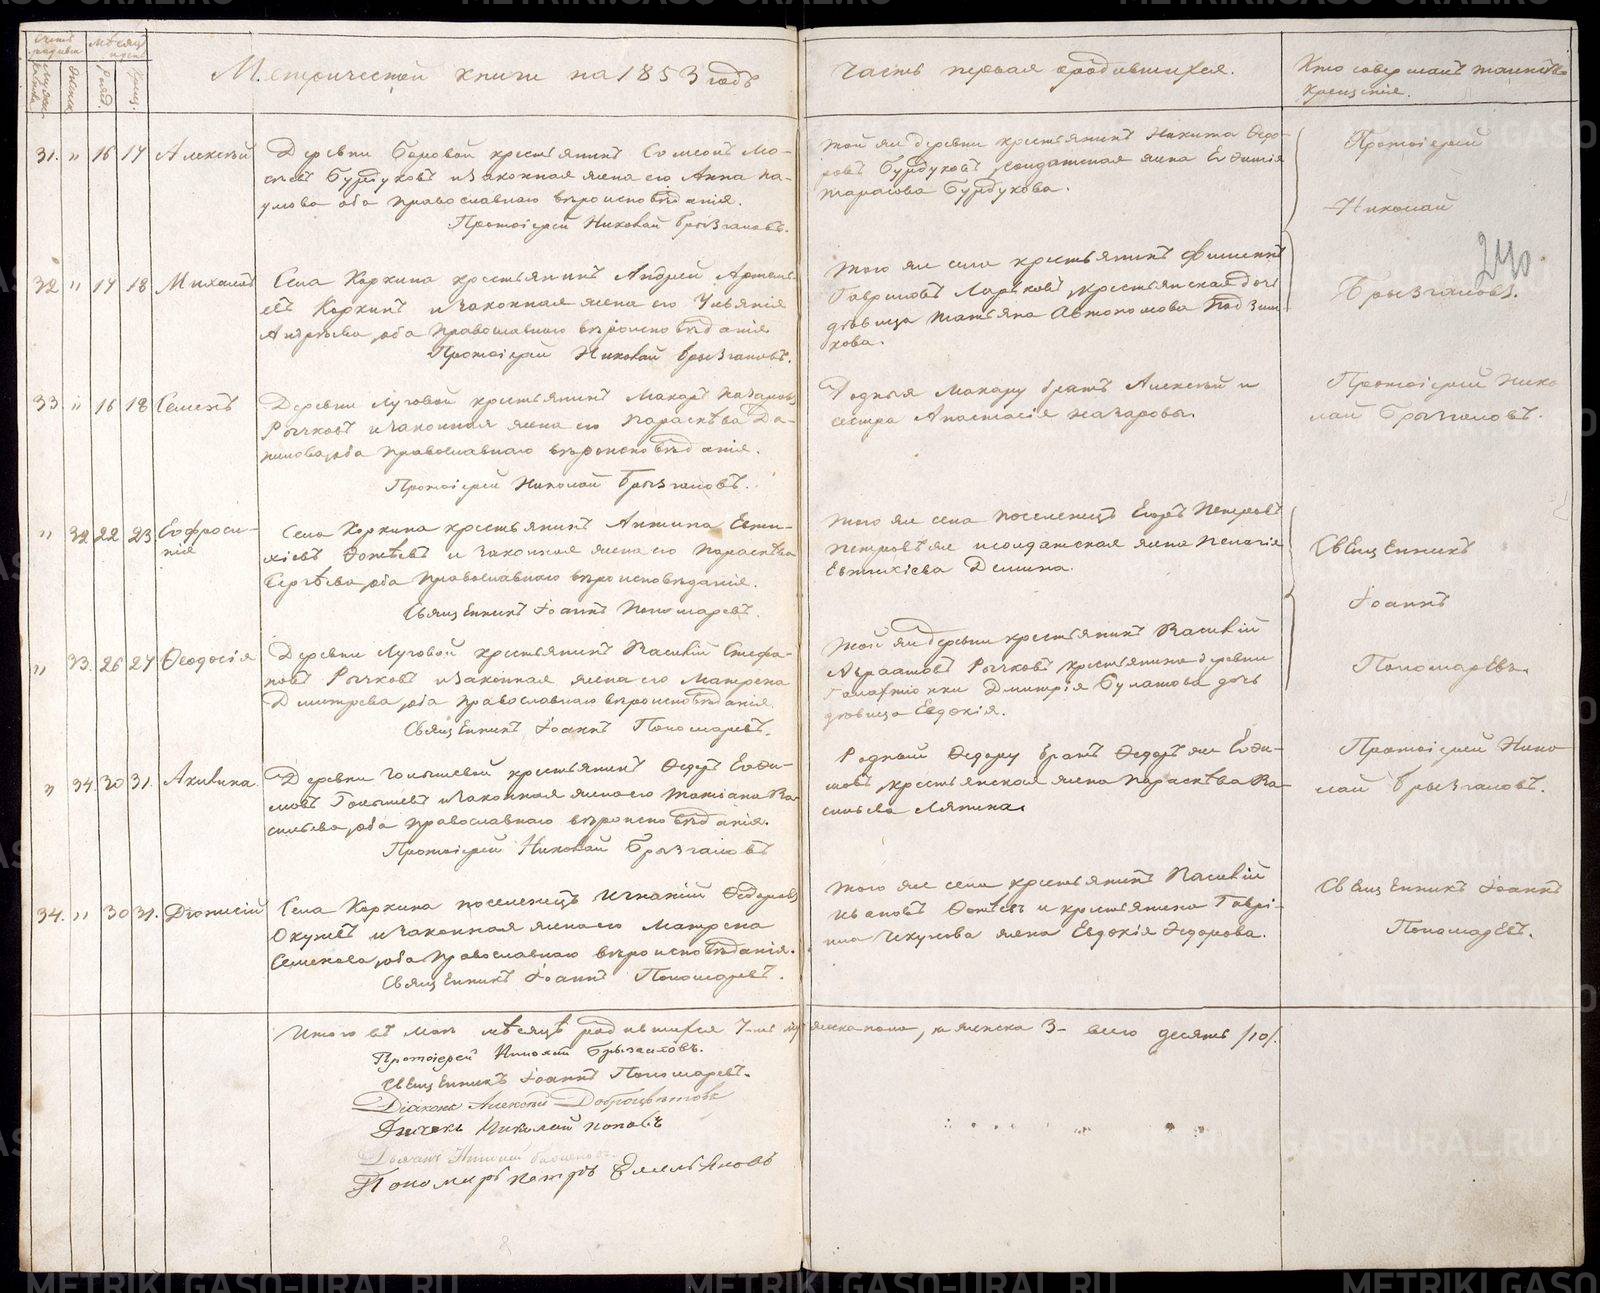 Счетъ родивш.
Мѣсяцъ и день
Мужеска
Женска
Рожд.
Крещ.
Метрической книги на 1853 годъ
часть первая о родившихся.
Кто совершалъ таинство
крещенія.
31. " 16 17 Алексѣй
Деревни Боровой крестьянинъ Симеонъ Мо-
Бурдуковъ и законная жена его Анна На-
умова оба православнаго вѣроисповѣданія.
Протоіерей Николай Брызгаловъ.
той же деревни крестьянинъ Никита Ѳедо-
ровъ Бурдуковъ, солдатская жена Евдокія
Тарасова Бурдукова.
Протоіерей
Николай
Брызгаловъ.
240.
32 " 17 18 Михаилъ
Села Коркина крестьянинъ Андрей Артемь-
евъ Коркинъ и законная жена его Ульянія
Андреева, оба православнаго вѣроисповѣданія
Протоіерей Николай Брызгаловъ.
того же села крестьянинъ Филиппъ
Гавриловъ, крестьянская дочь
дѣвица Татьяна Автономова
33. " 16 18 Семенъ
Деревни Луговой крестьянинъ Макаръ Назаровъ
Рычковъ и законная жена его Параскѣва Да-
нилова, оба православнаго вѣроисповѣданія.
Протоіерей Николай Брызгаловъ.
Родныя Макару братъ Алексѣй и
сестра Анастасія Назаровы.
Протоіерей Нико-
лай Брызгаловъ.
" 32 22 23 Евфроси-
нія
Села Коркина крестьянинъ Антипа Евти-
хіевъ Ѳотѣевъ и законная жена его Параскѣва
Сергѣева, оба православнаго вѣроисповѣданія.
Священникъ Іоаннъ Пономаревъ.
того же села поселенецъ Егоръ Петровъ
Петровъ же и солдатская жена Пелагія
Евтихіева Демина.
Священникъ
Іоаннъ
Пономаревъ.
" 33. 26 27 Ѳеодосія
Деревни Луговой крестьянинъ Василій Стефа-
новъ Рычковъ и законная жена его Матрена
Дмитрева, оба православнаго вѣроисповѣданія.
Священникъ Іоаннъ Пономаревъ.
той же деревни крестьянинъ Василій
Рычковъ, крестьянина деревни
Дмитрія Булатова дочь
дѣвица Евдокія.
" 34. 30 31. Акилина.
Деревни Голышевой крестьянинъ Ѳедоръ Евдо-
мовъ Голышевъ и законная жена его Татіана Ва-
сильева, оба православнаго вѣроисповѣданія.
Протоіерей Николай Брызгаловъ
Родный Ѳедору братъ Ѳедоръ же Евдо-
мовъ, крестьянская жена Параскѣва Ва-
сильева Ляпина.
Протоіерей Нико-
лай Брызгаловъ.
34. " 30 31. Діонисій
Села Коркина поселенецъ Игнатій Ѳедоровъ
и законная жена его Матрена
Семенова, оба православнаго вѣроисповѣданія.
Священникъ Іоаннъ Пономаревъ.
того же села крестьянинъ Василій
Ивановъ Ѳотѣевъ и крестьянина Гаврі-
ила жена Евдокія Ѳедорова.
Священникъ Іоаннъ
Пономаревъ.
Итого въ маи мѣсяцѣ родившихся 7-мь мужеска пола, а женска 3- всего десять /10/.
Протоіерей Николай Брызгаловъ.
Священникъ Іоаннъ Пономаревъ.
Діаконъ Алексѣй Доброцвѣтовъ
Дьячекъ Николай Поповъ
Пономарь Петръ Емельяновъ
METRIKI.GASO-URAL.RU